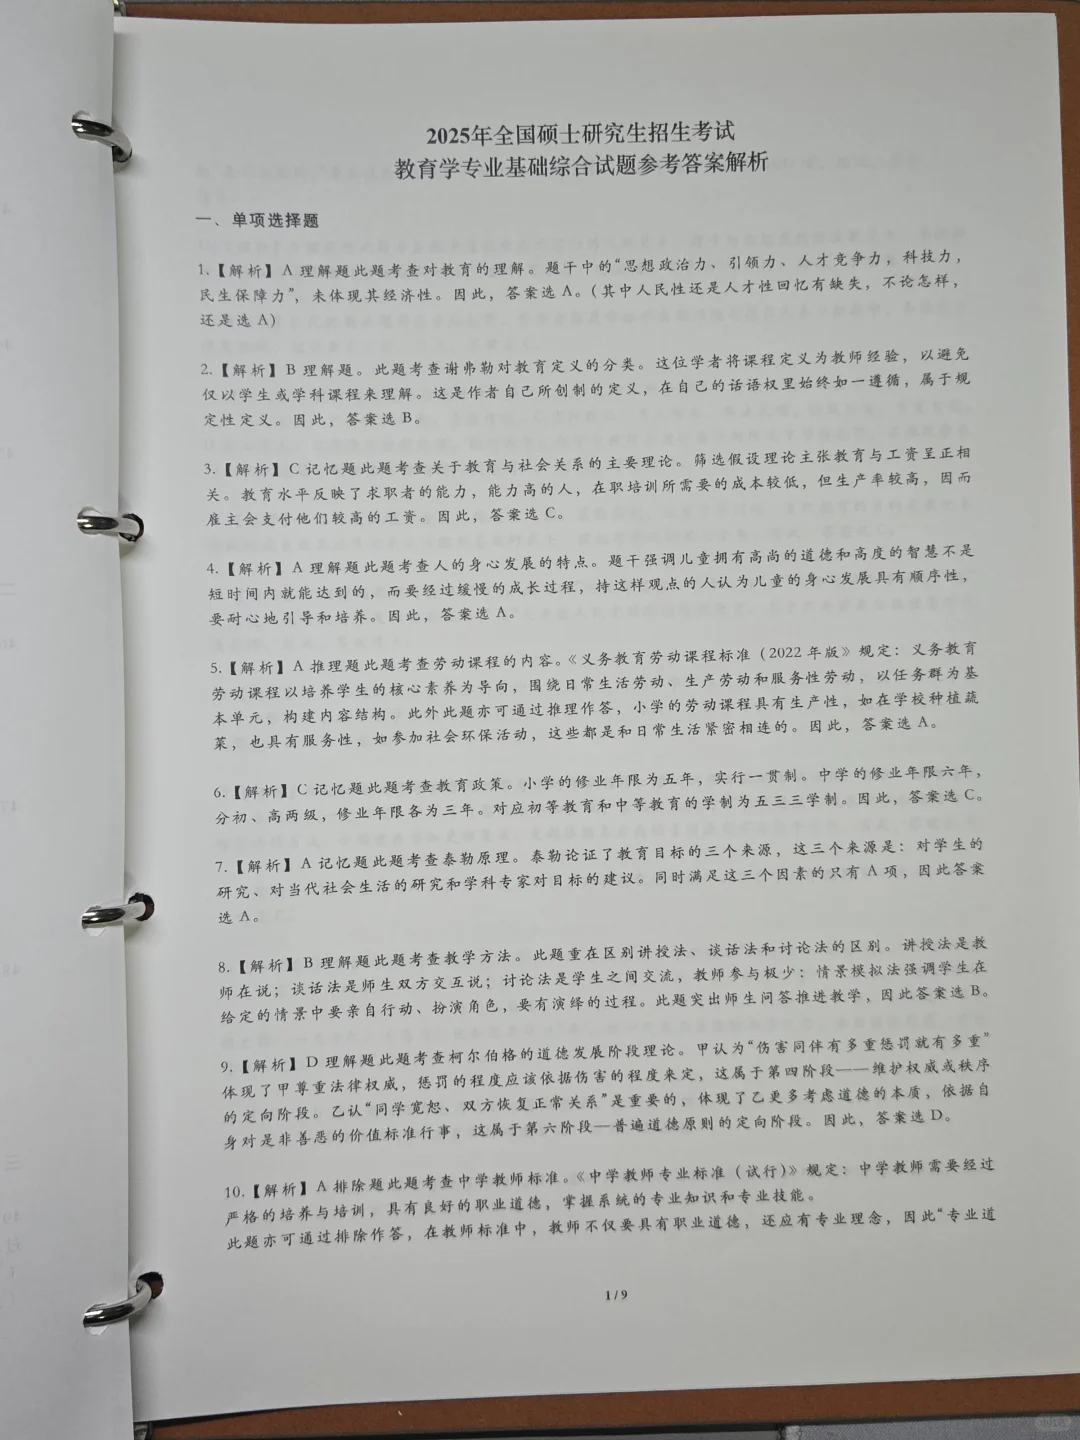 2025年全国硕士研究生招生考试
教育学专业基础综合试题参考答案解析
一、单项选择题
1.【解析】A 理解题此题考查对教育的理解。题干中的“思想政治力、引领力、人才竞争力，科技力，
民生保障力”，未体现其经济性。因此，答案选 A。（其中人民性还是人才性回忆有缺失，不论怎样，
还是选 A）
2.【解析】B 理解题。此题考查谢弗勒对教育定义的分类。这位学者将课程定义为教师经验，以避免
仅以学生或学科课程来理解。这是作者自己所创制的定义，在自己的话语权里始终如一遵循，属于规
定性定义。因此，答案选 B。
3.【解析】C 记忆题此题考查关于教育与社会关系的主要理论。筛选假设理论主张教育与工资呈正相
关。教育水平反映了求职者的能力，能力高的人，在职培训所需要的成本较低，但生产率较高，因而
雇主会支付他们较高的工资。因此，答案选 C。
4.【解析】A 理解题此题考查人的身心发展的特点。题干强调儿童拥有高尚的道德和高度的智慧不是
短时间内就能达到的，而要经过缓慢的成长过程，持这样观点的人认为儿童的身心发展具有顺序性，
要耐心地引导和培养。因此，答案选 A。
5.【解析】A 推理题此题考查劳动课程的内容。《义务教育劳动课程标准（2022 年版》规定：义务教育
劳动课程以培养学生的核心素养为导向，围绕日常生活劳动、生产劳动和服务性劳动，以任务群为基
本单元，构建内容结构。此外此题亦可通过推理作答，小学的劳动课程具有生产性，如在学校种植蔬
菜，也具有服务性，如参加社会环保活动，这些都是和日常生活紧密相连的。因此，答案选 A。
6.【解析】C 记忆题此题考查教育政策。小学的修业年限为五年，实行一贯制。中学的修业年限六年，
分初、高两级，修业年限各为三年。对应初等教育和中等教育的学制为五三三学制。因此，答案选 C。
7.【解析】A 记忆题此题考查泰勒原理。泰勒论证了教育目标的三个来源，这三个来源是：对学生的
研究、对当代社会生活的研究和学科专家对目标的建议。同时满足这三个因素的只有 A 项，因此答案
选 A。
8.【解析】B 理解题此题考查教学方法。此题重在区别讲授法、谈话法和讨论法的区别。讲授法是教
师在说；谈话法是师生双方交互说；讨论法是学生之间交流，教师参与极少：情景模拟法强调学生在
给定的情景中要亲自行动、扮演角色，要有演绎的过程。此题突出师生问答推进教学，因此答案选 B。
9.【解析】D 理解题此题考查柯尔伯格的道德发展阶段理论。甲认为“伤害同伴有多重惩罚就有多重”
体现了甲尊重法律权威，惩罚的程度应该依据伤害的程度来定，这属于第四阶段——维护权威或秩序
的定向阶段。乙认“同学宽恕、双方恢复正常关系”是重要的，体现了乙更多考虑道德的本质，依据自
身对是非善恶的价值标准行事，这属于第六阶段—普遍道德原则的定向阶段。因此，答案选 D。
10.【解析】A 排除题此题考查中学教师标准。《中学教师专业标准（试行）》规定：中学教师需要经过
严格的培养与培训，具有良好的职业道德，掌握系统的专业知识和专业技能。
此题亦可通过排除作答，在教师标准中，教师不仅要具有职业道德，还应有专业理念，因此“专业道
1 / 9